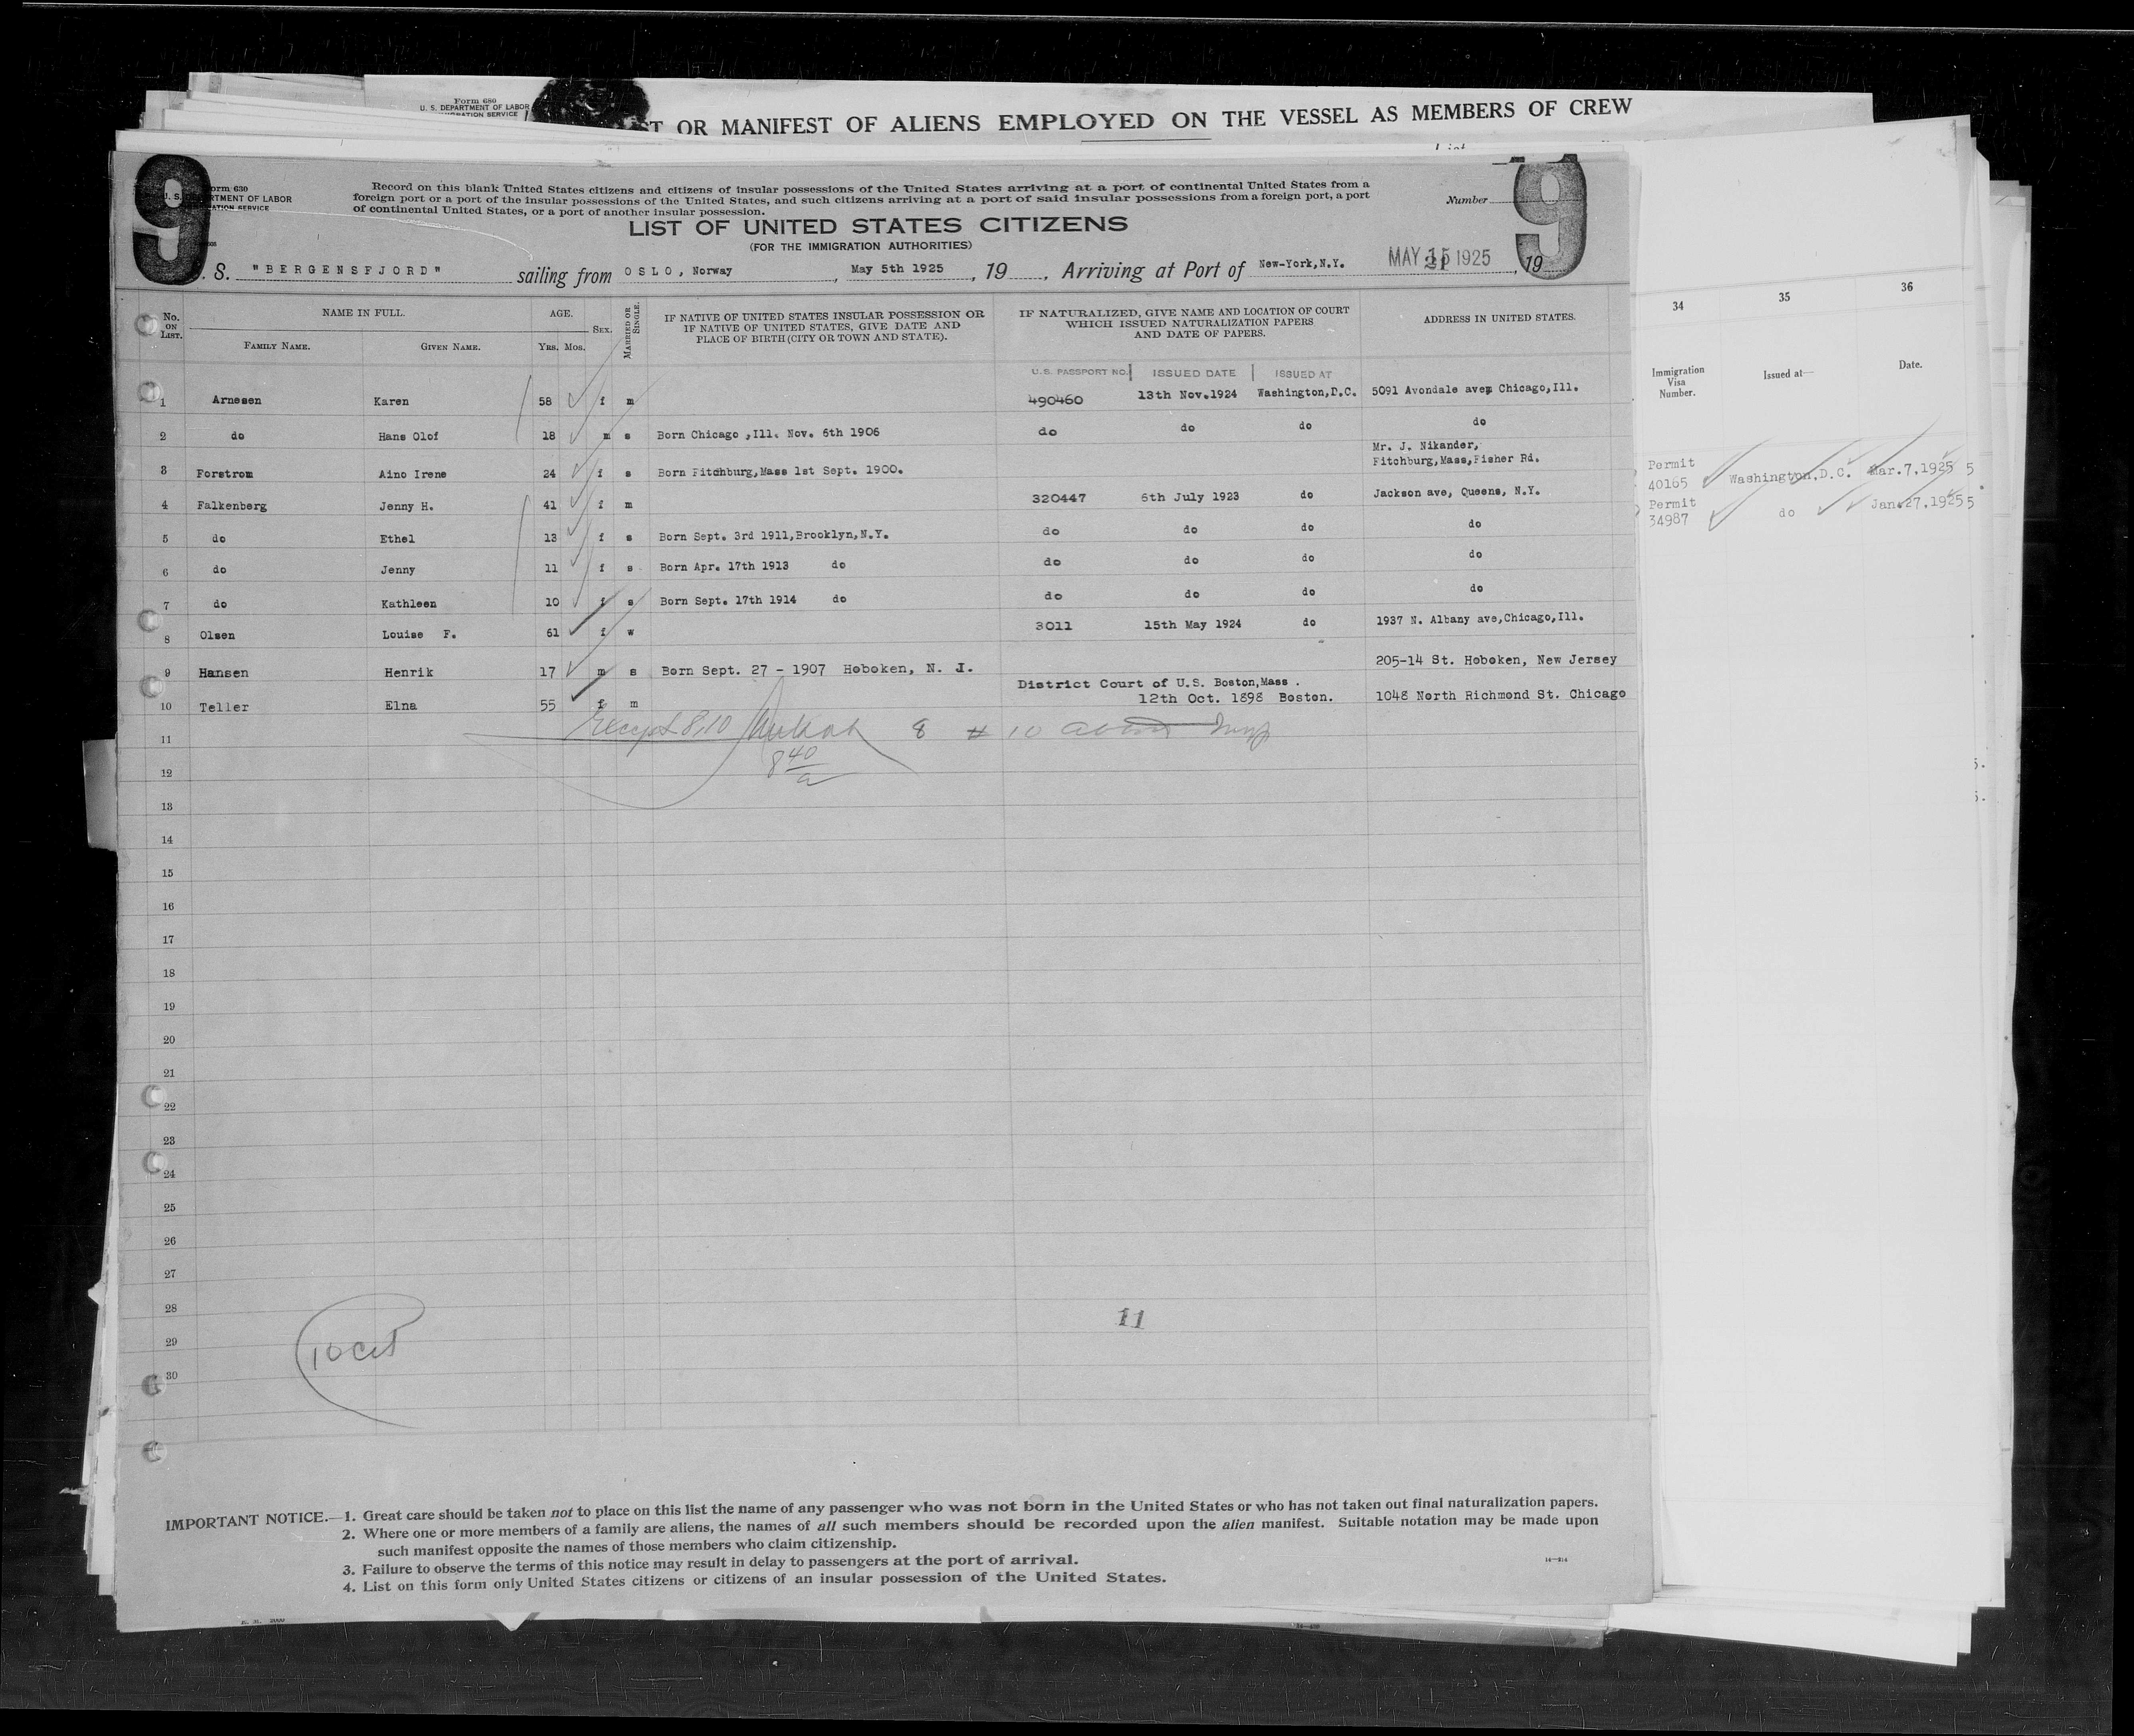 Form 680
U. S. DEPARTMENT OF LABOR
OR MANIFEST OF ALIENS EMPLOYED ON THE VESSEL AS MEMBERS OF CREW
9
Form 630
U. S. DEPARTMENT OF LABOR
Record on this blank United States citizens and citizens of insular possessions of the United States arriving at a port of continental United States from a
foreign port or a port of the insular possessions of the United States, and such citizens arriving at a port of said insular possessions from a foreign port, a port
of continental United States, or a port of another insular possession.
Number
9
LIST OF UNITED STATES CITIZENS
(FOR THE IMMIGRATION AUTHORITIES)
S. "BERGENSFJORD" sailing from OSLO, Norway, May 5th 1925, 19, Arriving at Port of New-York, N.Y. MAY 15 1925, 19
No. ON LIST. NAME IN FULL. AGE. SEX. MARRIED OR SINGLE. IF NATIVE OF UNITED STATES INSULAR POSSESSION OR IF NATIVE OF UNITED STATES, GIVE DATE AND PLACE OF BIRTH (CITY OR TOWN AND STATE). IF NATURALIZED, GIVE NAME AND LOCATION OF COURT WHICH ISSUED NATURALIZATION PAPERS AND DATE OF PAPERS. ADDRESS IN UNITED STATES.
FAMILY NAME. GIVEN NAME. YRS. MOS.
U.S. PASSPORT NO. ISSUED DATE ISSUED AT
1 Arnesen Karen 58 f m 490460 13th Nov.1924 Washington,D.C. 5091 Avondale ave, Chicago,Ill.
2 do Hans Olof 18 m s Born Chicago ,Ill. Nov. 6th 1906 do do do do
Mr. J. Nikander,
3 Forstrom Aino Irene 24 f s Born Fitchburg,Mass 1st Sept. 1900. Fitchburg,Mass,Fisher Rd.
4 Falkenberg Jenny H. 41 f m 320447 6th July 1923 do Jackson ave, Queens, N.Y.
5 do Ethel 13 f s Born Sept. 3rd 1911,Brooklyn,N.Y. do do do do
6 do Jenny 11 f s Born Apr. 17th 1913 do do do do do
7 do Kathleen 10 f s Born Sept. 17th 1914 do do do do do
8 Olsen Louise F. 61 f w 3011 15th May 1924 do 1937 N. Albany ave,Chicago,Ill.
9 Hansen Henrik 17 m s Born Sept. 27 - 1907 Hoboken, N. J. 205-14 St. Hoboken, New Jersey
District Court of U.S. Boston,Mass .
10 Teller Elna 55 f m 12th Oct. 1898 Boston. 1048 North Richmond St. Chicago
11 Except 8,10 8 # 10
12 8 40
13
14
15
16
17
18
19
20
21
22
23
24
25
26
27
28
29
30
11
10 Cit
IMPORTANT NOTICE.—1. Great care should be taken not to place on this list the name of any passenger who was not born in the United States or who has not taken out final naturalization papers.
2. Where one or more members of a family are aliens, the names of all such members should be recorded upon the alien manifest. Suitable notation may be made upon
such manifest opposite the names of those members who claim citizenship.
3. Failure to observe the terms of this notice may result in delay to passengers at the port of arrival.
4. List on this form only United States citizens or citizens of an insular possession of the United States.
14—214
34 35 36
Immigration Visa Number. Issued at— Date.
Permit
40165 Washington,D.C. Mar.7,1925 5
Permit
34987 do Jan.27,1925 5